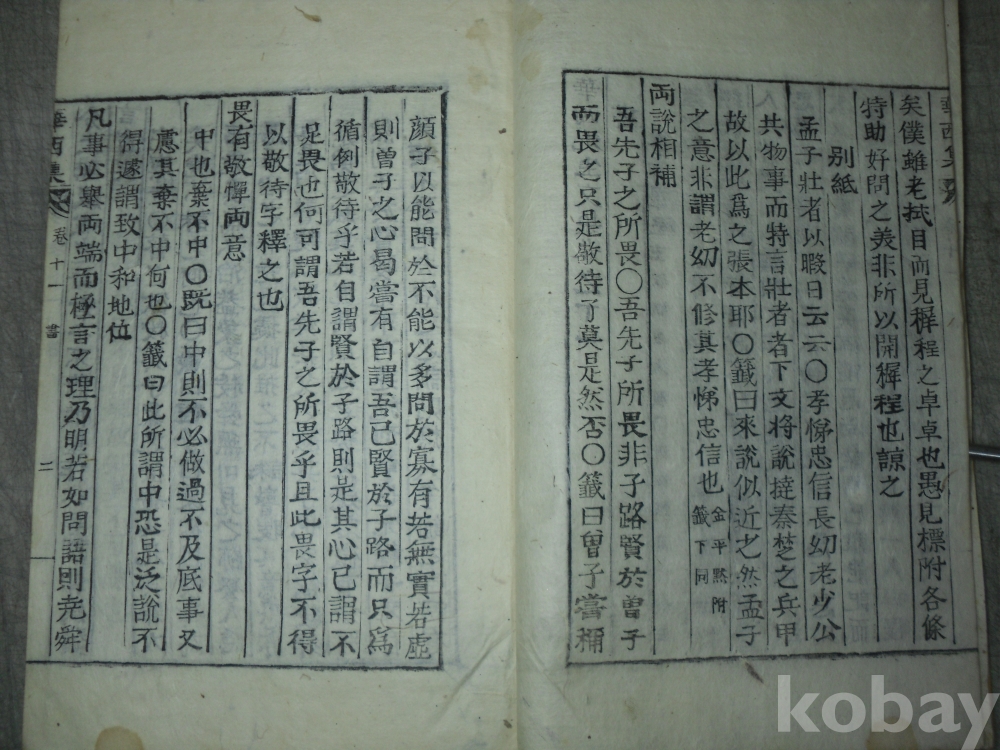 矣僕雖老拭目而見樨程之卓卓也愚見標附各條
特助好問之美非所以開樨程也諒之
別紙
孟子壯者以暇日云云〇孝悌忠信長幼老少公
共物事而特言壯者者下文將說撻秦楚之兵甲
故以此爲之張本耶〇籤曰來說似近之然孟子
之意非謂老幼不修其孝悌忠信也金平黙附籤下同
兩說相補
吾先子之所畏〇吾先子所畏非子路賢於曾子
而畏之只是敬待了莫是然否〇籤曰曾子嘗稱
顔子以能問於不能以多問於寡有若無實若虛
則曾子之心曷嘗有自謂吾已賢於子路而只爲
循例敬待乎若自謂賢於子路則是其心已謂不
足畏也何可謂吾先子之所畏乎且此畏字不得
以敬待字釋之也
畏有敬憚兩意
中也棄不中〇旣曰中則不必做過不及底事又
慮其棄不中何也〇籤曰此所謂中恐是泛說不
得遽謂致中和地位
凡事必擧兩端而極言之理乃明若如問語則堯舜
華西集
卷十一 書
二
華西集
kobay